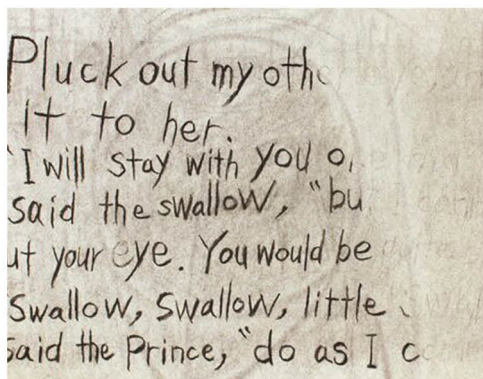 Pluck out my oth
it to her.
"I will stay with you o
said the swallow, "bu
ut your eye. You would be
Swallow, Swallow, little
said the Prince, "do as I c